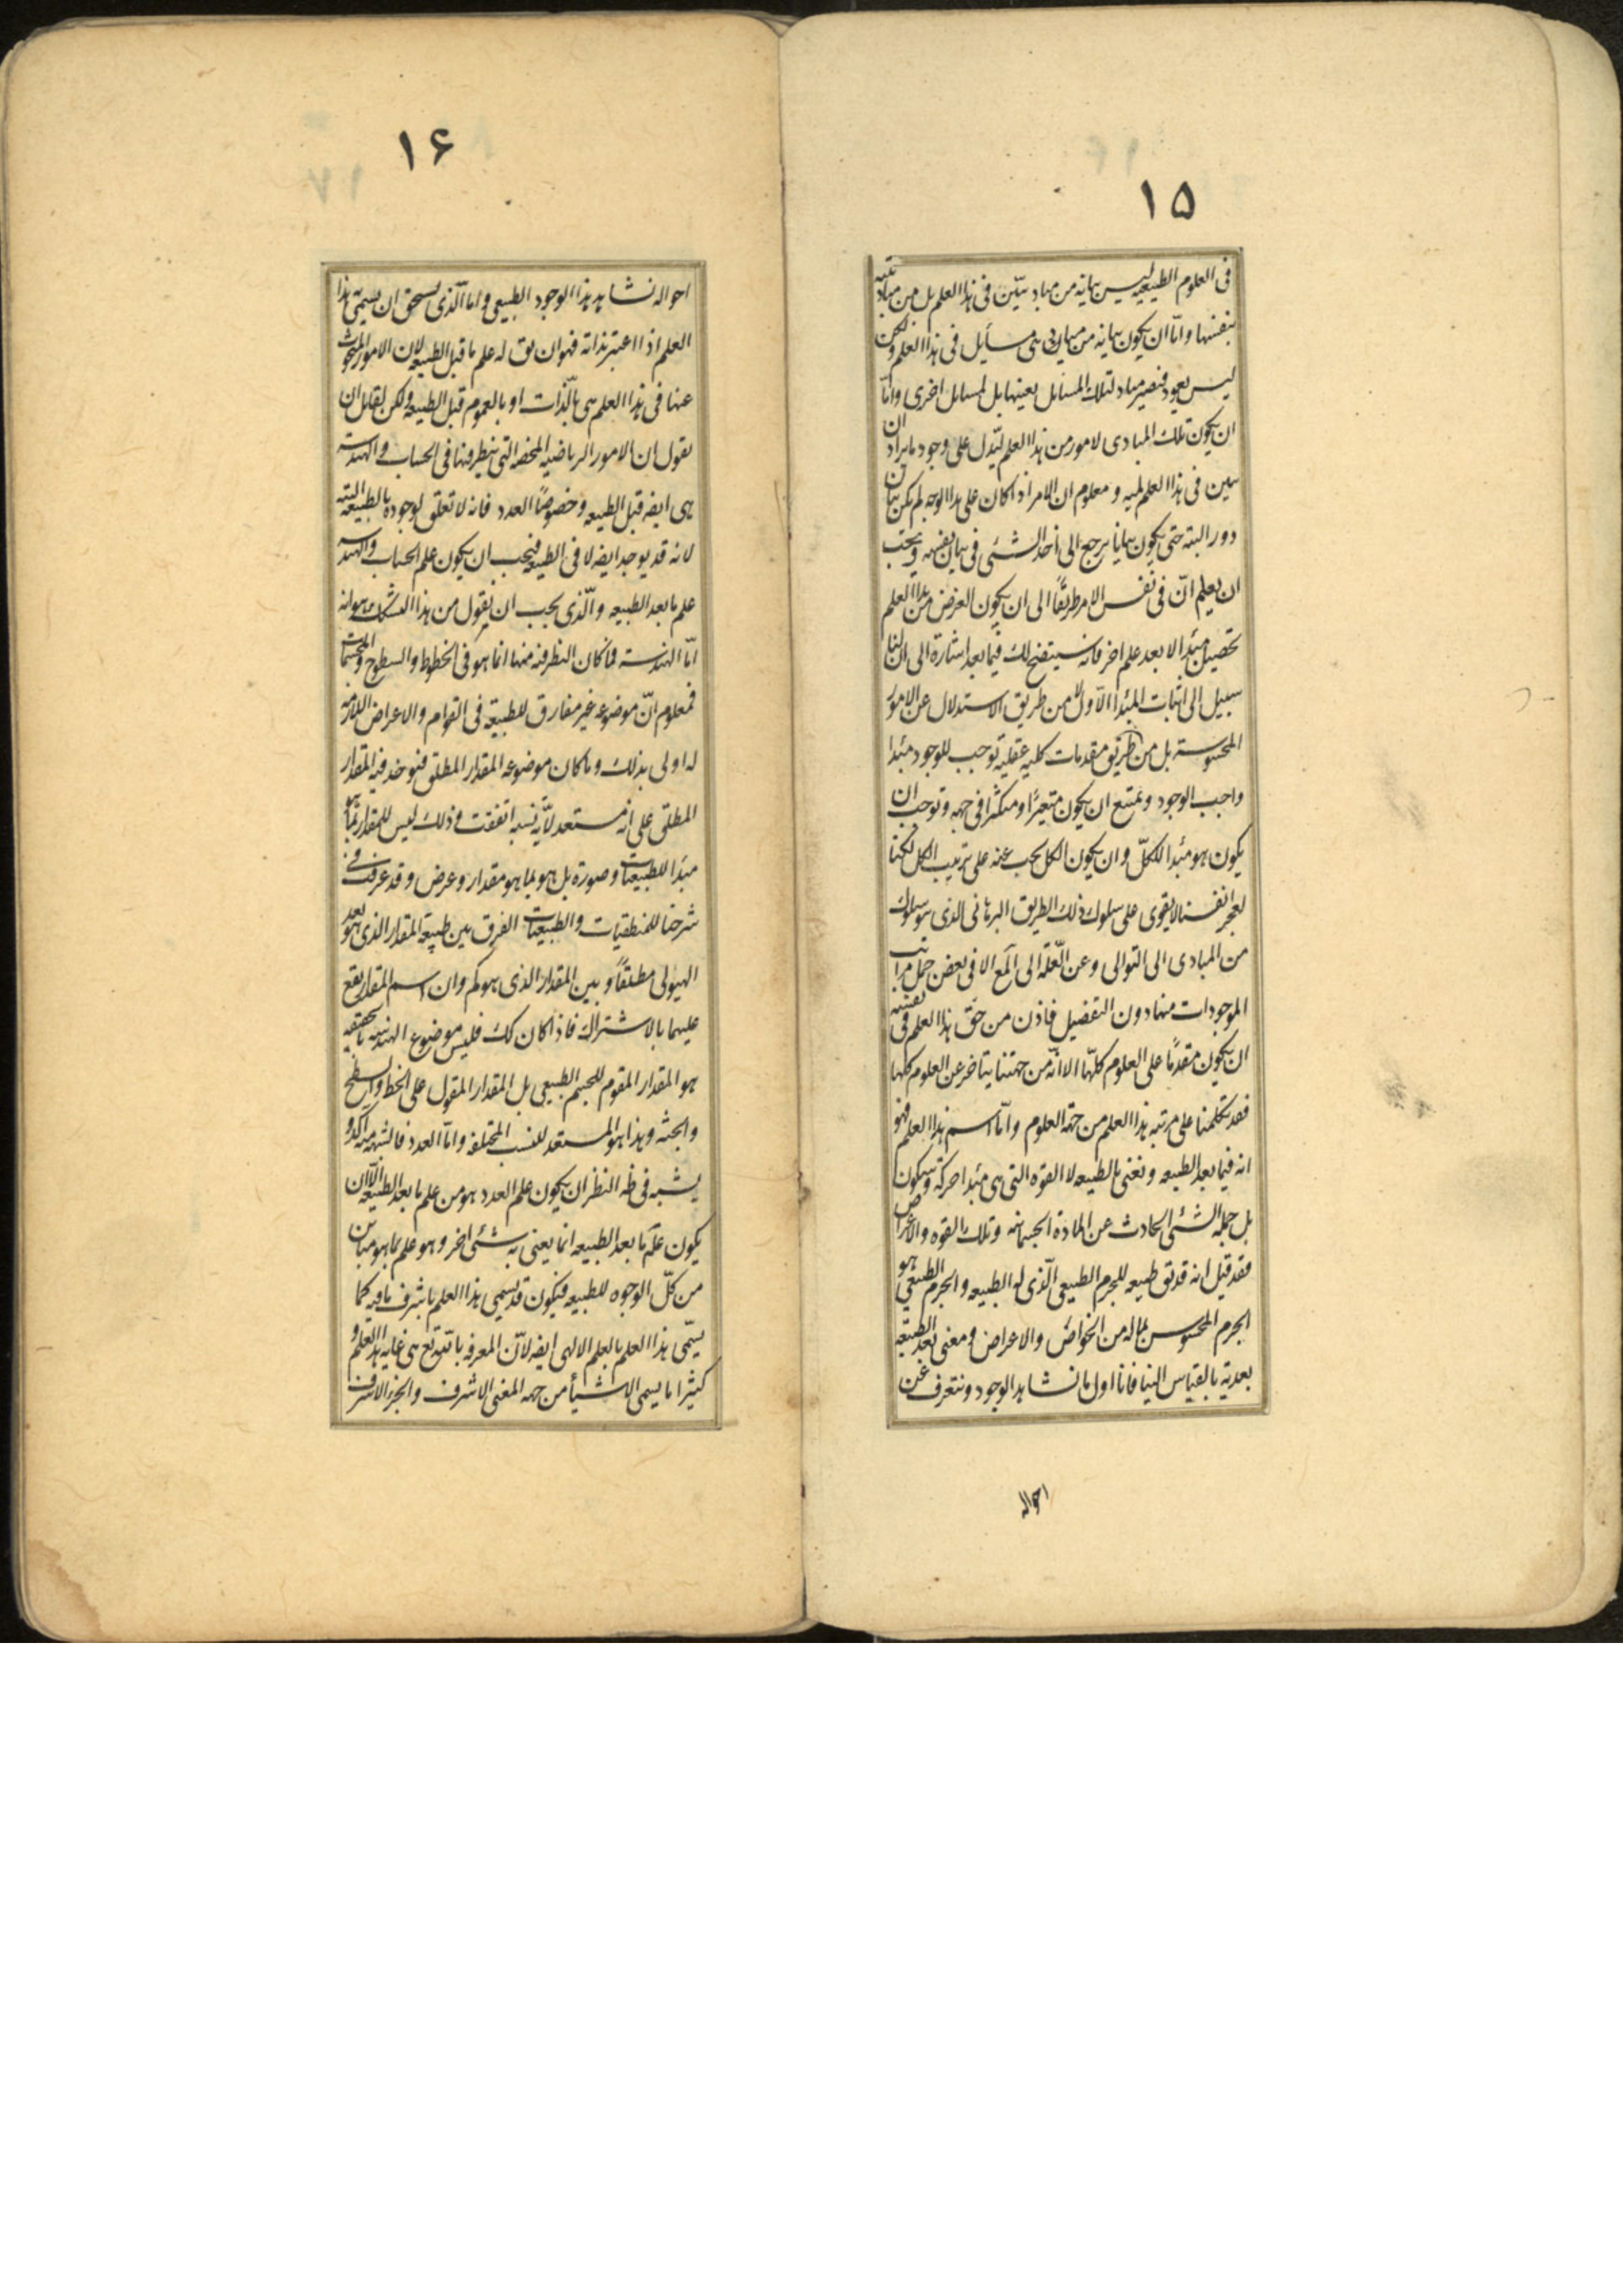 ١٥
فى العلوم الطبيعيه ليس بيانه من مباد تبيّن فى هذا العلم بل من مباد بينة
بنفسها واما ان يكون بيانه من مباد هى مسايل فى هذا العلم ولكن
ليس يعود فيصير مباد لتلك المسائل بعينها بل لمسائل اخرى واما
ان يكون تلك المبادى لامور من هذا العلم ليدل على وجود ما يراد ان
يبين فى هذا العلم لميه ومعلوم ان الامر اذا كان على هذا الوجه لم يكن بيان
دور البته حتى يكون بيانا يرجع الى أخذ الشئى فى بيان نفسه ويجب
ان يعلم انّ فى نفس الامر طريقًا الى ان يكون الغرض من هذا العلم
تحصيل مبدا الا بعد علم اخر فانه سيتضح لك فيما بعد اشارة الى ان لنا
سبيل الى اثبات المبدا الاول لا من طريق الاستدلال عن الامور
المحسوسة بل من طريق مقدمات كليه عقليه توجب للوجود مبدا
واجب الوجود ويمتنع ان يكون متغيرًا او متكثرا فى جهه وتوجب ان
يكون هو مبدا للكلّ وان يكون الكل يجب عنه على ترتيب الكل لكنا
لعجز انفسنا لا يقوى على سلوك ذلك الطريق البرهانى الذى هو سلوك
من المبادى الى التوالى وعن العلّة الى المع الا فى بعض جمل مراتب
الموجودات منها دون التفصيل فاذن من حق هذا العلم فى نفسه
ان يكون مقدمًا على العلوم كلّها الا انّه من جهتنا يتاخر عن العلوم كلها
فقد تكلمنا على مرتبه هذا العلم من جمله العلوم وامّا اسم هذا العلم فهو
انه فيما بعد الطبيعه ونعنى بالطبيعه لا القوه التى هى مبدا حركة وسكون
بل جمله الشئى الحادث عن المادة الجسمانيه وتلك القوه والاعراض
فقد قيل انه قد يق طبيعه للجرم الطبيعى الّذى له الطبيعه والجرم الطبيعى هو
الجرم المحسوس بما له من الخواص والاعراض ومعنى بعد الطبيعة
بعدية بالقياس الينا فانا اول ما نشاهد الوجود ونتعرف عن
احواله
١۶
احواله نشاهد هذا الوجود الطبيعى واما الّذى يستحق ان يسمىّ هذا
العلم اذا اعتبر بذاته فهو ان يق له علم ما قبل الطبيعه لان الامور المبحوث
عنها فى هذا العلم هى بالّذات او بالعموم قبل الطبيعه ولكن لقايل ان
يقول ان الامور الرياضيه المحضه التى ينظر فيها فى الحساب والهندسة
هى ايضه قبل الطبيعه وخصوصًا العدد فانه لا تعلق لوجوده بالطبيعه البته
لانه قد يوجد ايضه لا فى الطبيعه فيجب ان يكون علم الحساب والهندسه
علم ما بعد الطبيعه والّذى يجب ان يقول من هذا التشكك هو انه
امّا الهندسة فما كان النظر فيه منها انما هو فى الخطوط والسطوح والمجسمات
فمعلوم انّ موضوعه غير مفارق للطبيعة فى القوام والاعراض اللازمه
له اولى بذلك وما كان موضوعه المقدار المطلق فيوخذ فيه المقدار
المطلق على انه مستعد لأيّة نسبه اتفقت وذلك ليس للمقدار بما هو
مبدا للطبيعيات وصورة بل هو بما هو مقدار وعرض وقد عرفت فى
شرحنا للمنطقيات والطبيعيات الفرق بين طبيعة المقدار الذى هو بعد
الهيولى مطلقًا وبين المقدار الذى هو كم وان اسم المقدار يقع
عليهما بالاشتراك فاذا كان كك فليس موضوع الهندسه بالحقيقه
هو المقدار المقوم للجسم الطبيعى بل المقدار المقول على الخط والسطح
والجثه وهذا هو المستعد للنسب المختلفه وامّا العدد فالشبهه فيه اكد و
يشبه فى ظه النظر ان يكون علم العدد هو من علم ما بعد الطبيعه الّا ان
يكون علم ما بعد الطبيعه انما يعنى به شئى اخر وهو علم بما هو مباين
من كلّ الوجوه للطبيعه فيكون قد يسمى هذا العلم باشرف ما فيه كما
يسمّى هذا العلم بالعلم الالهى ايضه لانّ المعرفه بالله تع هى غايه هذا العلم و
كثيرا ما يسمى الاشيأ من جهه المعنى الاشرف والجزء الاشرف